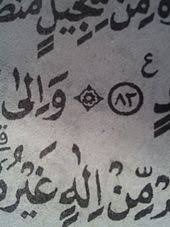 مِّنْ سِجِّيلٍ
ع ٨٣ وَاِلٰى
مِّنْ اِلٰهٍ غَيْرُهٗ